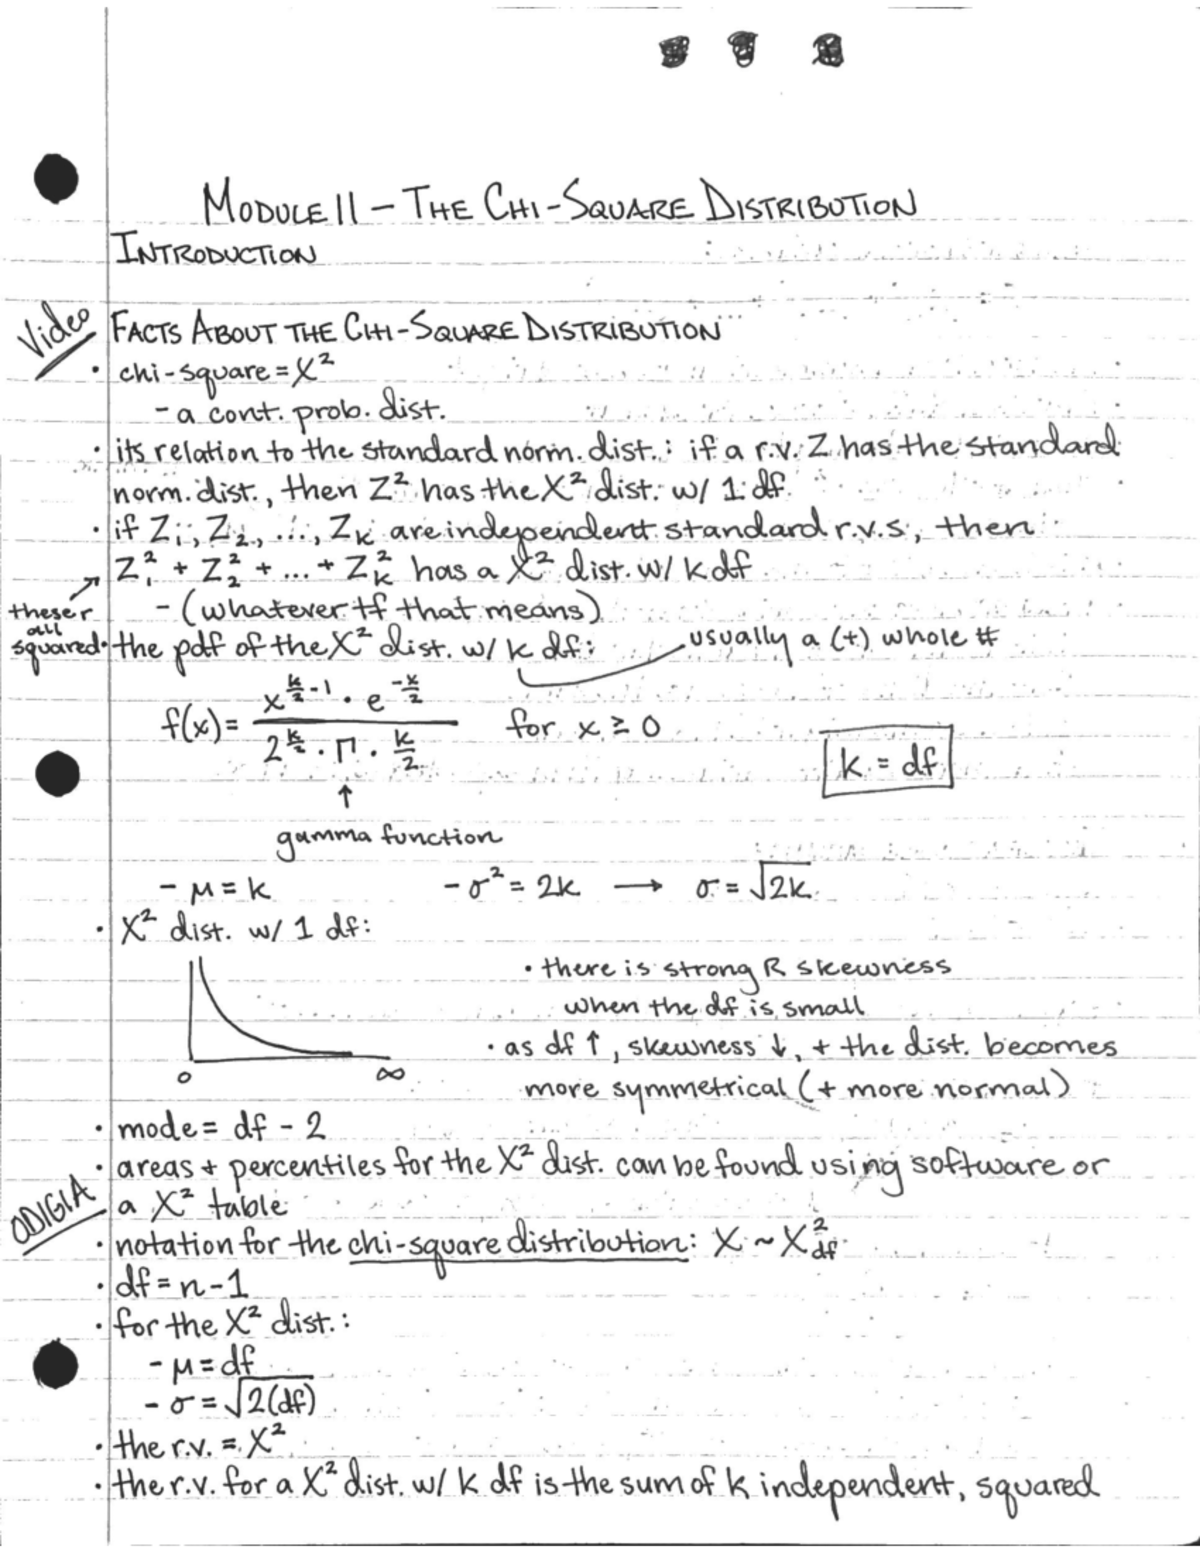 MODULE 11 – THE CHI-SQUARE DISTRIBUTION
INTRODUCTION
Video
FACTS ABOUT THE CHI-SQUARE DISTRIBUTION
• chi-square = X²
- a cont. prob. dist.
• its relation to the standard norm. dist.: if a r.v. Z has the standard
norm. dist., then Z² has the X² dist. w/ 1 df
• if Z₁, Z₂, ..., Zₖ are independent standard r.v.s, then
Z₁² + Z₂² + ... + Zₖ² has a X² dist. w/ k df
these r
all
squared
- (whatever tf that means)
• the pdf of the X² dist. w/ k df:
usually a (+) whole #
f(x) = x^(k/2 - 1) · e^(-x/2) / 2^(k/2) · Γ · k/2 for x ≥ 0
k = df
↑
gamma function
- μ = k - σ² = 2k → σ = √2k
• X² dist. w/ 1 df:
• there is strong R skewness
when the df is small
• as df ↑, skewness ↓, + the dist. becomes
more symmetrical (+ more normal)
0 ∞
• mode = df - 2
• areas + percentiles for the X² dist. can be found using software or
a X² table
ODIGIA
• notation for the chi-square distribution: X ~ X²df
• df = n - 1
• for the X² dist.:
- μ = df
- σ = √2(df)
• the r.v. = X²
• the r.v. for a X² dist. w/ k df is the sum of k independent, squared